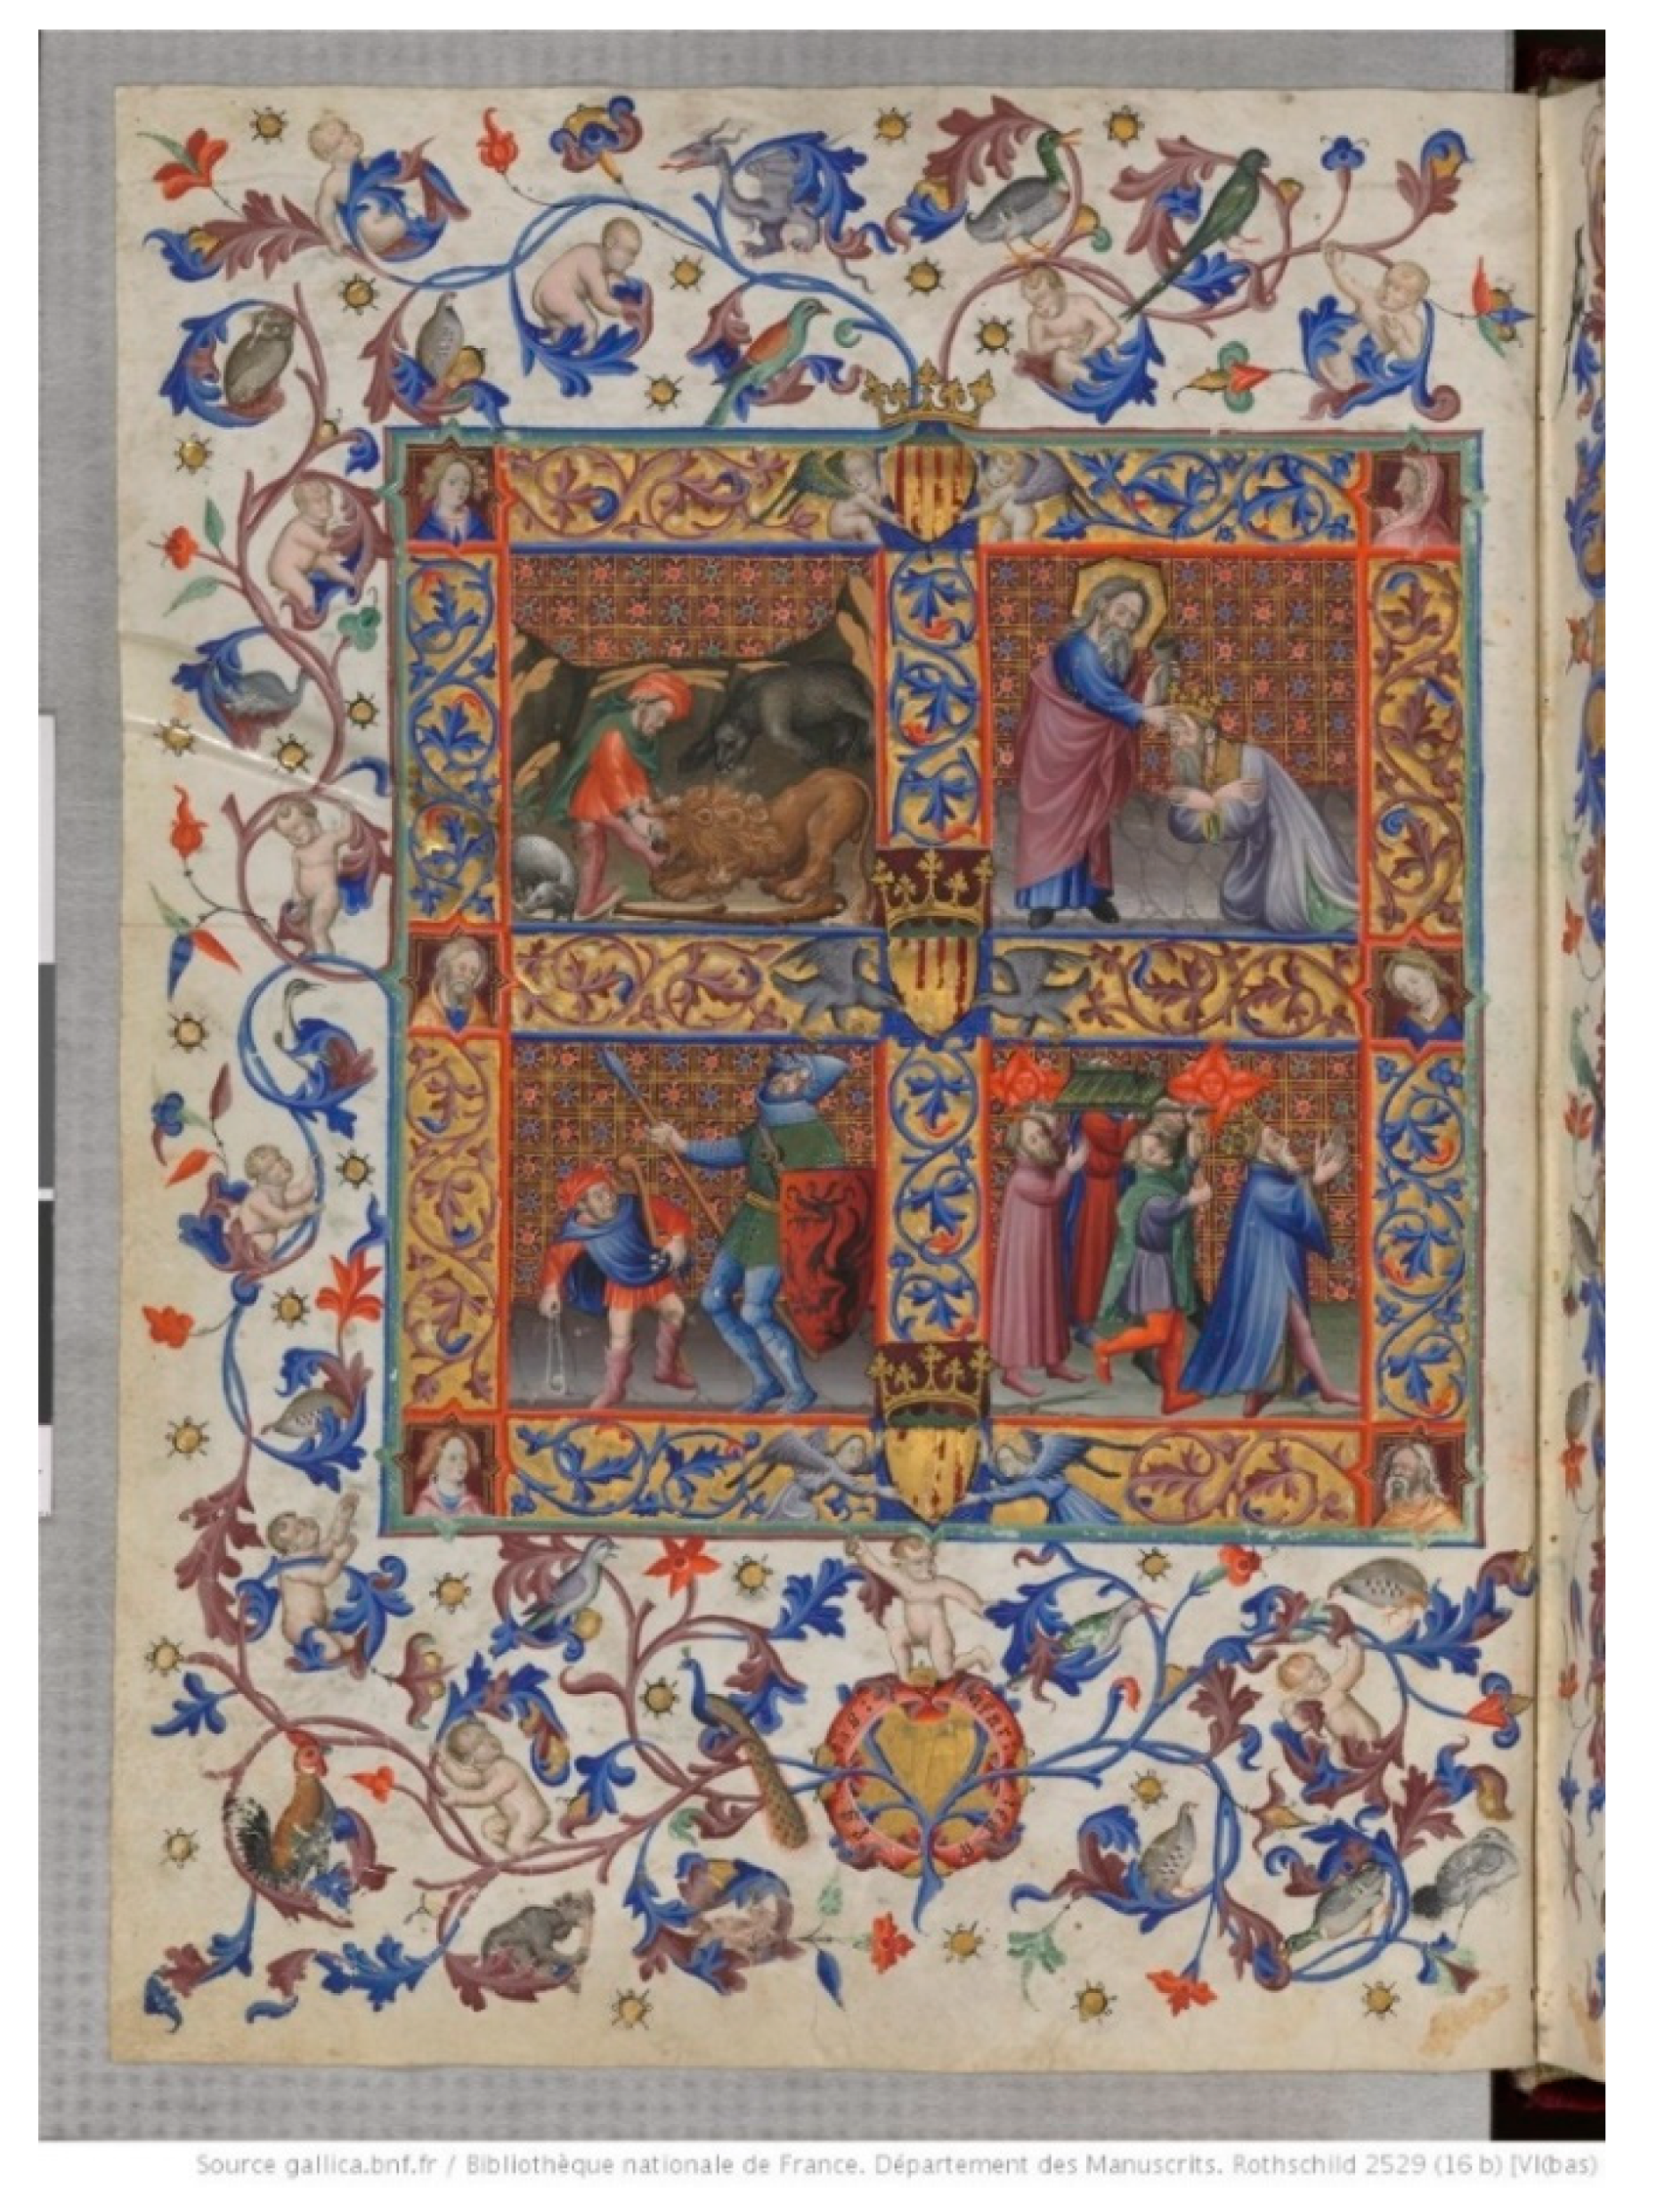 Source gallica.bnf.fr / Bibliothèque nationale de France. Département des Manuscrits. Rothschild 2529 (16 b) [VI(bas)